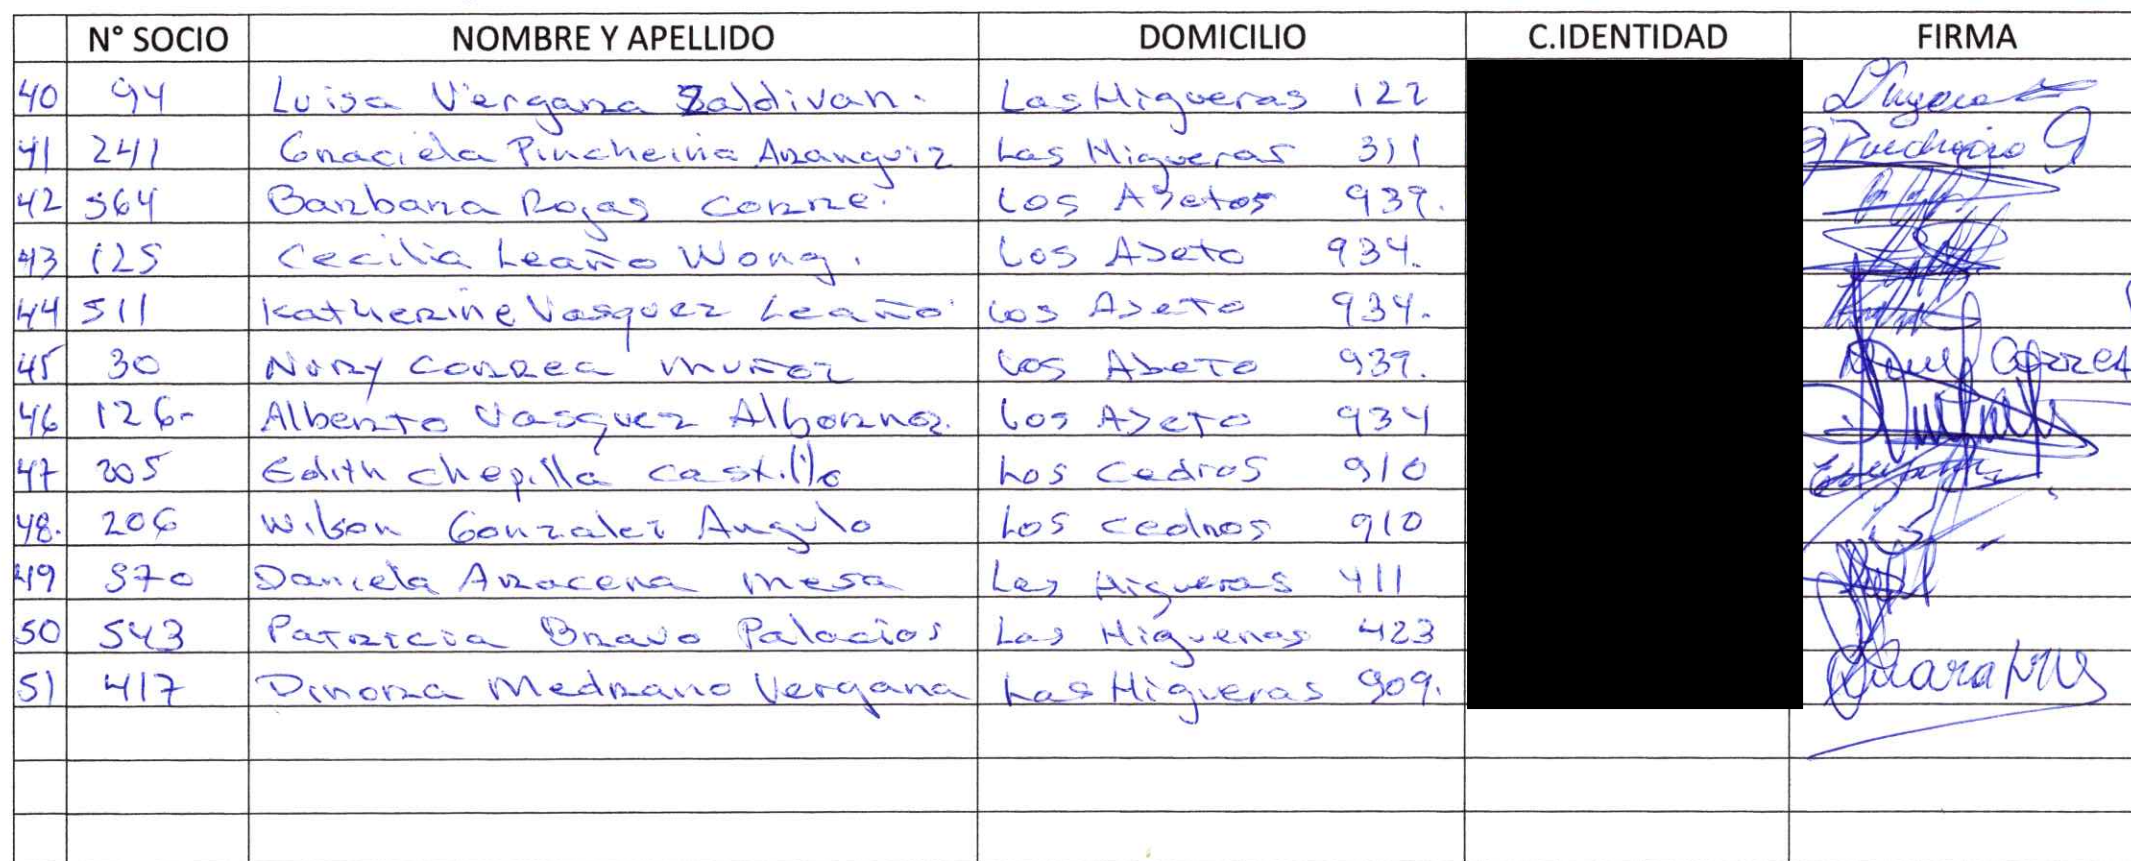 N° SOCIO NOMBRE Y APELLIDO DOMICILIO C.IDENTIDAD FIRMA
40 94 Luisa Vergara Zaldivar. Las Higueras 122
41 241 Graciela Pincheira Aranguiz Las Higueras 311
42 564 Barbara Rojas Corre. Los Abetos 939.
43 125 Cecilia Leaño Wong. Los Abeto 934.
44 511 Katherine Vasquez Leaño Los Abeto 934.
45 30 Nury Correa Muñoz Los Abeto 939. Correa
46 126- Alberto Vasquez Albornoz. Los Abeto 934
47 205 Edith Chepilla Castillo Los Cedros 910
48. 206 Wilson Gonzalez Angulo Los Cedros 910
49 570 Daniela Aracena Mesa Las Higueras 411
50 543 Patricia Bravo Palacios Las Higueras 423
51 417 Dinorza Medrano Vergara Las Higueras 909.